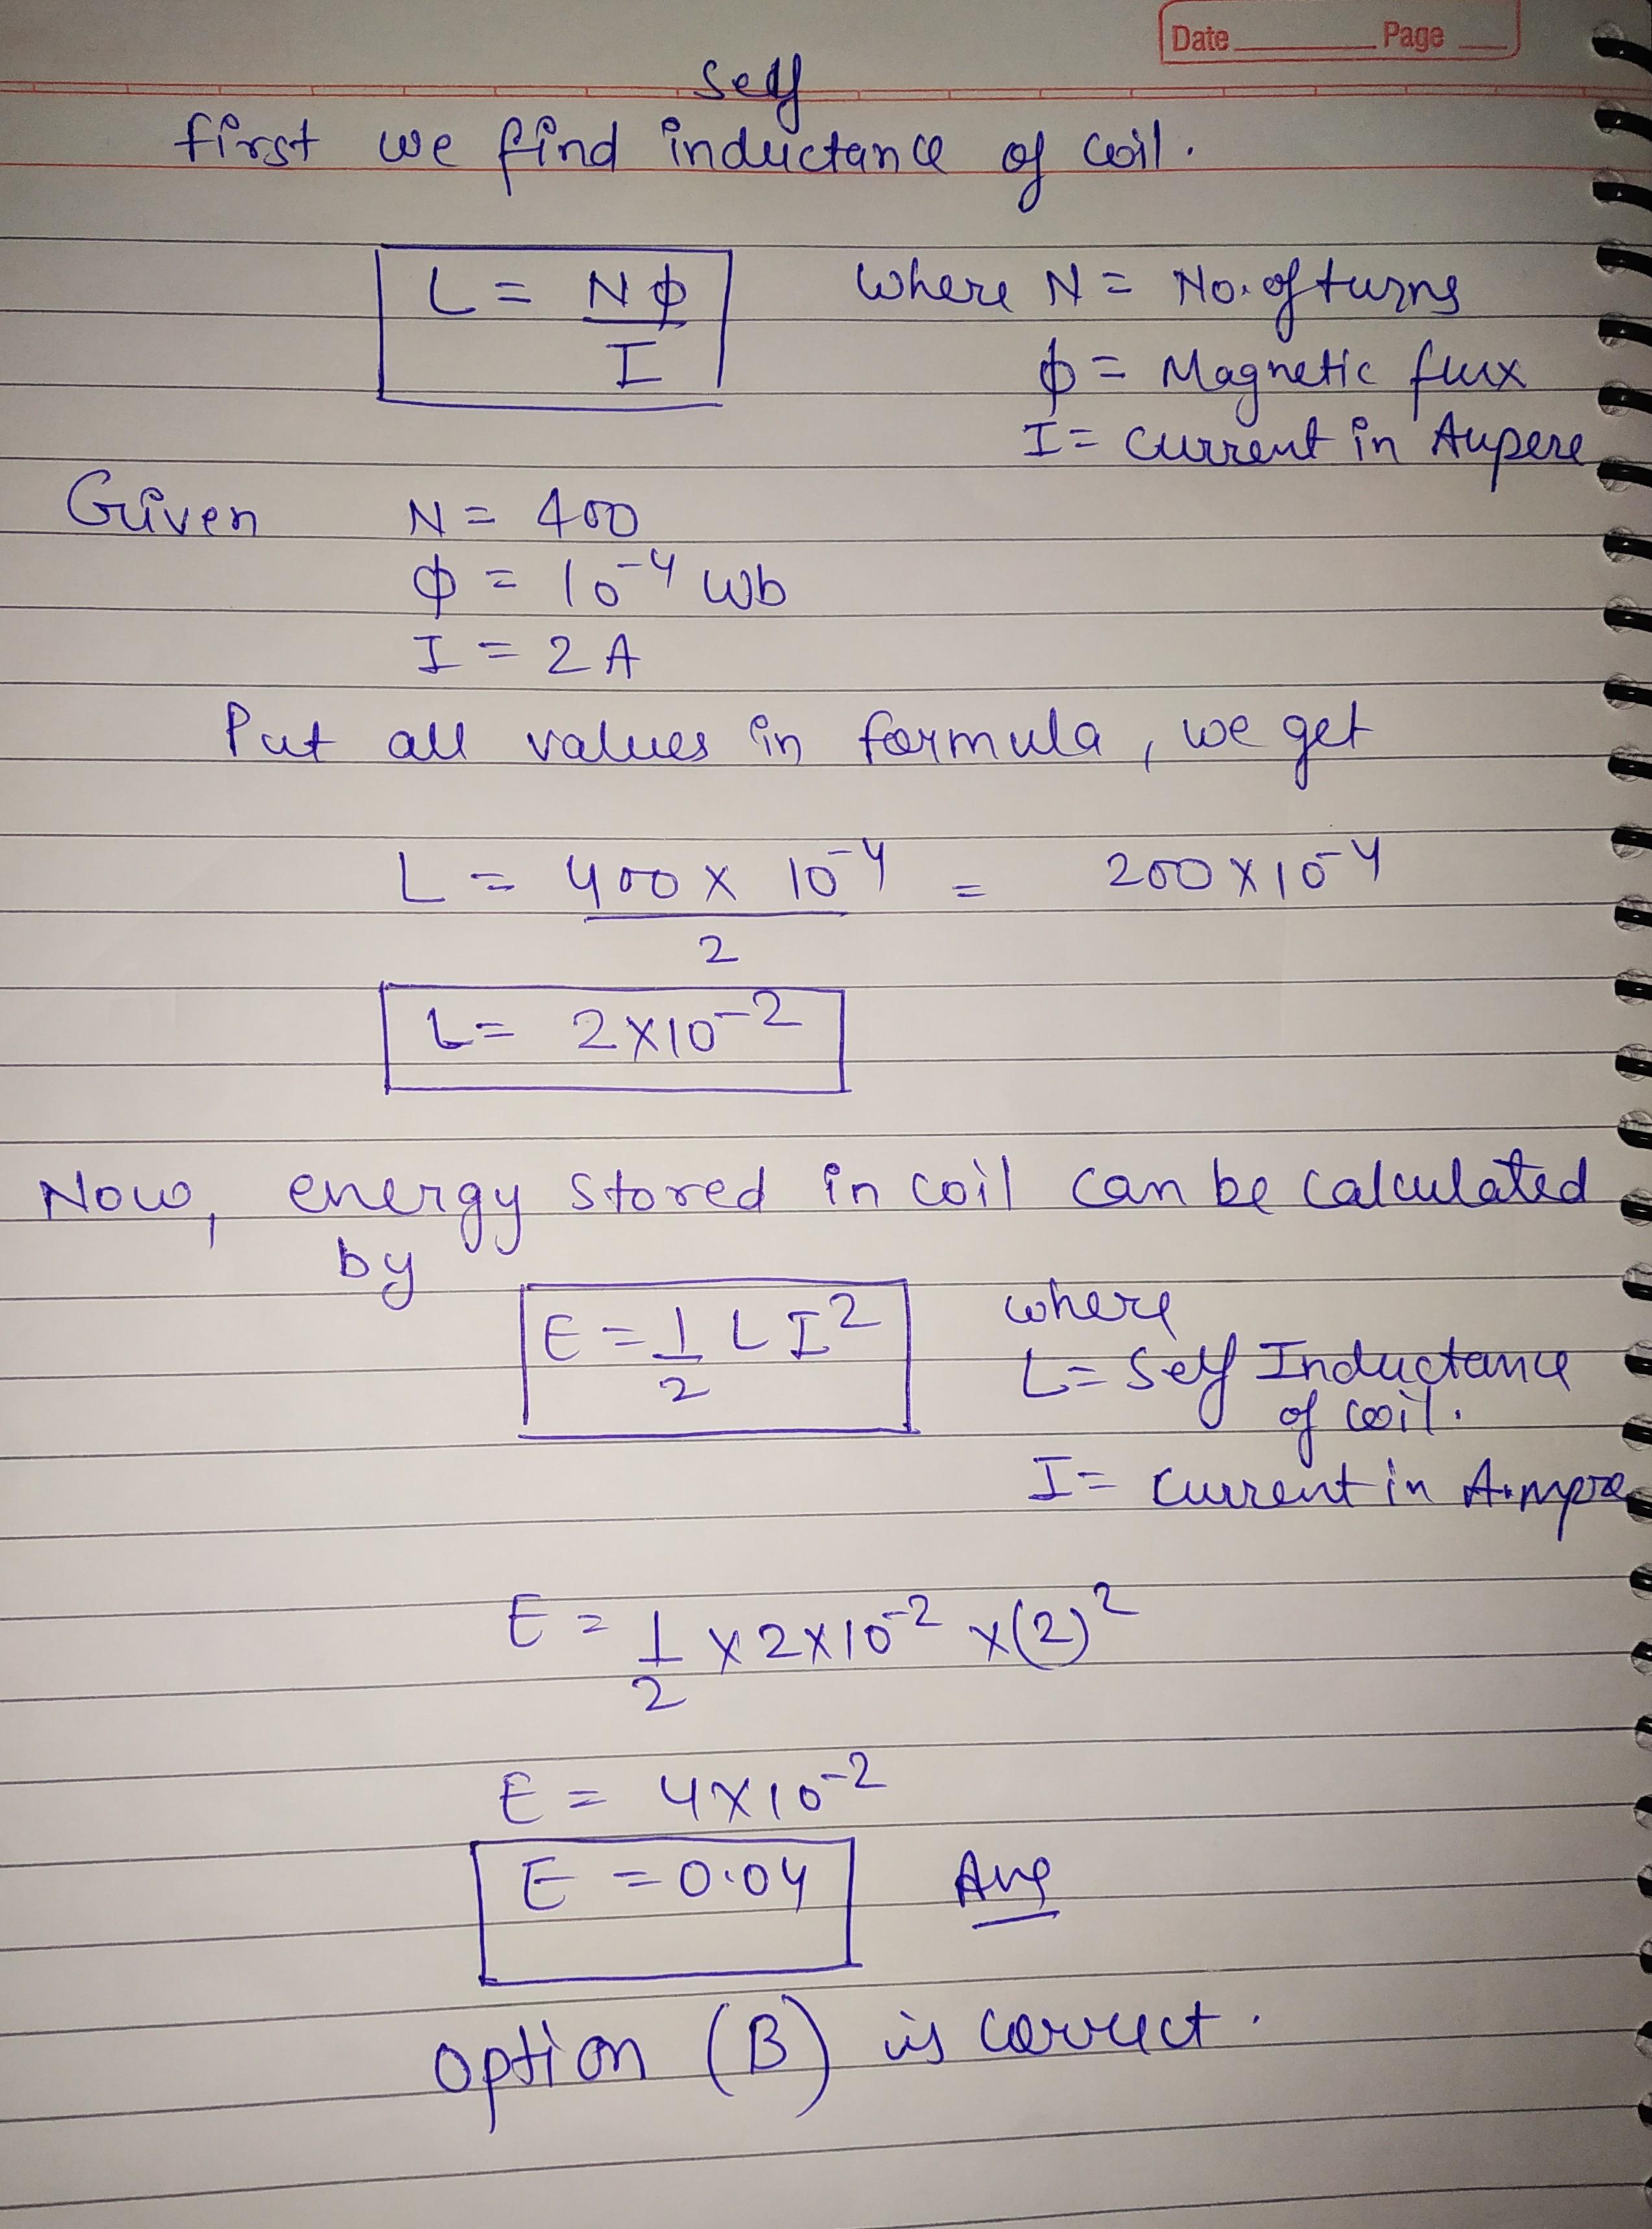 Date Page
self
first we find inductance of coil.
L = Nφ / I
where N = No. of turns
φ = Magnetic flux
I = current in Aupere
Given N = 400
φ = 10⁻⁴ Wb
I = 2 A
Put all values in formula, we get
L = 400 × 10⁻⁴ / 2 = 200 × 10⁻⁴
L = 2×10⁻²
Now, energy stored in coil can be calculated
by
E = 1/2 L I²
where
L = Self Inductance
of coil.
I = current in Ampre
E = 1/2 × 2×10⁻² ×(2)²
E = 4×10⁻²
E = 0.04 Ans
option (B) is correct.